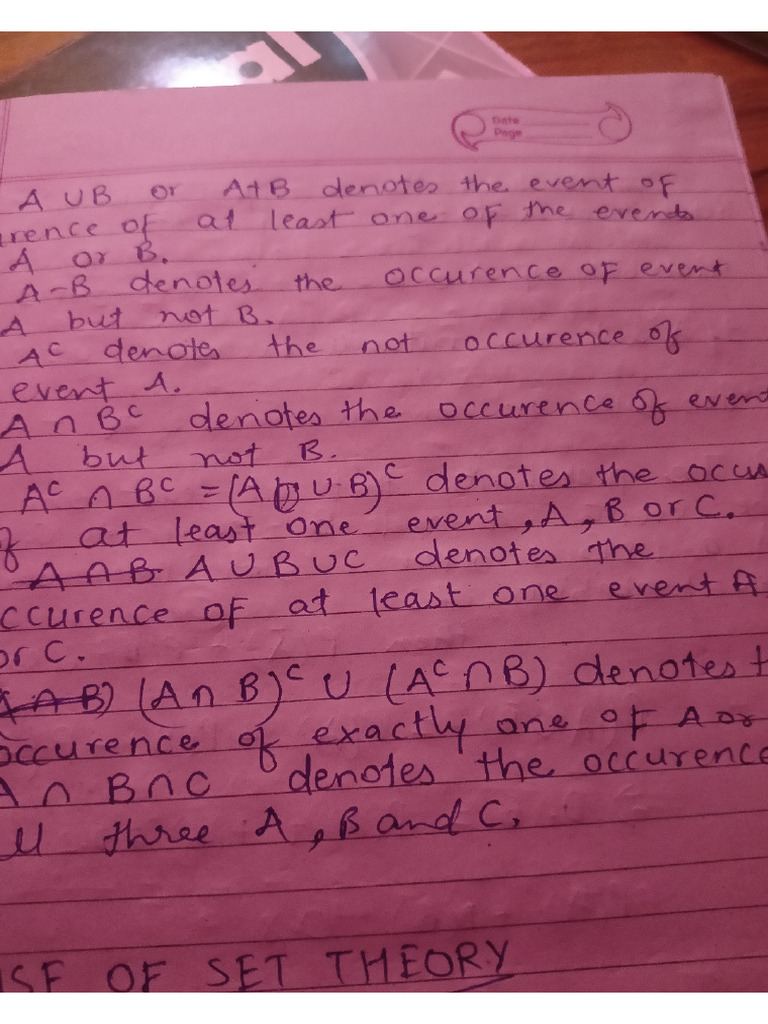 al
Date
Page
A ∪ B or A+B denotes the event of
urence of at least one of the events
A or B.
A-B denotes the occurence of event
A but not B.
Aᶜ denotes the not occurence of
event A.
A ∩ Bᶜ denotes the occurence of event
A but not B.
Aᶜ ∩ Bᶜ = (A ∪ B)ᶜ denotes the occu
of at least one event, A, B or C.
A ∩ B A ∪ B ∪ C denotes the
ccurence of at least one event A
or C.
(A ∩ B) (A ∩ B)ᶜ ∪ (Aᶜ ∩ B) denotes t
occurence of exactly one of A or
A ∩ B ∩ C denotes the occurence
ll three A, B and C.
SE OF SET THEORY